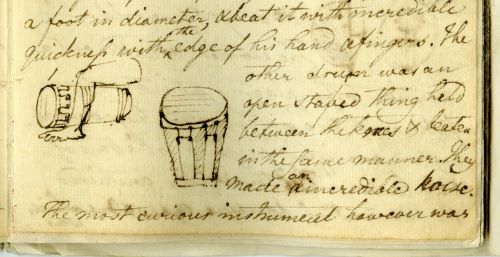 a foot in diameter, & beat it with incredible
quickness with the edge of his hand & fingers. The
other drum was an
open staved thing held
between the knees & beaten
in the same manner. They
made an incredible noise.
The most curious instrument however was